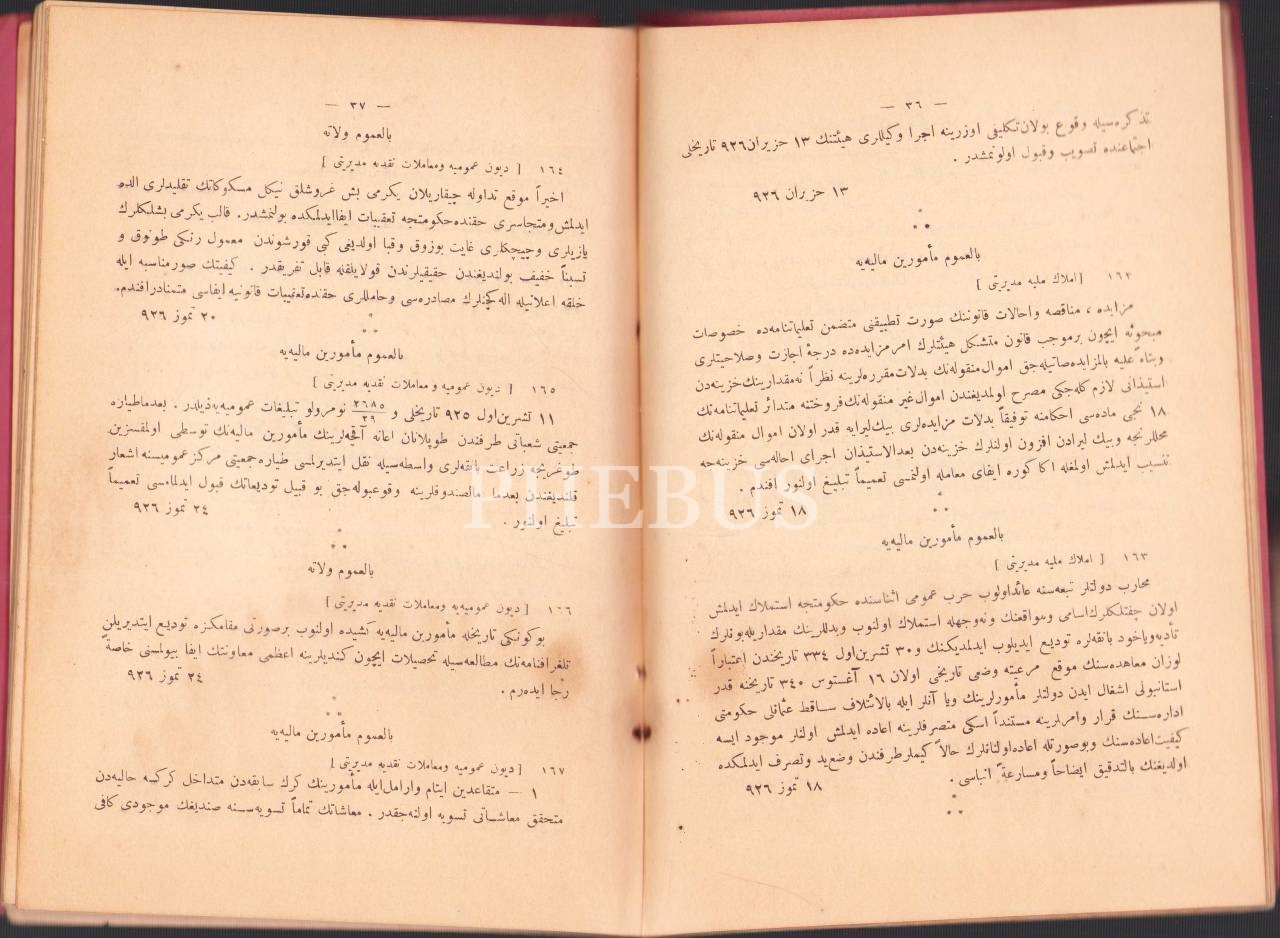 — ٣٦ —
تذكره‌سيله وقوع بولان تكليفى اوزرينه اجرا وكيللرى هيئتنك ١٣ حزيران ٩٢٦ تاريخلى
اجتماعنده تصويب وقبول اولونمشدر .
١٣ حزيران ٩٢٦
بالعموم مأمورين ماليه‌يه
١٦٢ [ املاك مليه مديريتى ]
مزايده ، مناقصه واحالات قانوننك صورت تطبيقنى متضمن تعليماتنامه‌ده خصوصات
مبحوثه ايچون برموجب قانون متشكل هيئتلرك امر مزايده‌ده درجهٔ اجازت وصلاحيتلرى
وبناءً عليه بالمزايده صاتيله‌جق اموال منقوله‌نك بدلات مقرره‌لرينه نظراً نه مقدارينك خزينه‌دن
استيذانى لازم كله‌جكى مصرح اولمديغندن اموال غير منقوله‌نك فروختنه متدائر تعليماتنامه‌نك
١٨ نجى ماده‌سى احكامنه توفيقاً بدلات مزايده‌لرى بيك ليرايه قدر اولان اموال منقوله‌نك
محللرنجه وبيك ليرادن افزون اولنلرك خزينه‌دن بعدالاستيذان اجراى احاله‌سى خزينه‌جه
تنسيب ايدلمش اولمغله اكا كوره ايفاى معامله اولنمسى تعميماً تبليغ اولنور افندم .
١٨ تموز ٩٢٦
بالعموم مأمورين ماليه‌يه
١٦٣ [ املاك مليه مديريتى ]
محارب دولتلر تبعه‌سنه عائد اولوب حرب عمومى اثناسنده حكومتجه استملاك ايدلمش
اولان چفتلكلرك اسامى ومواقعنك ونه‌وجهله استملاك اولنوب وبدللرينك مقداريله بونلرك
تأديه وياخود بانقه‌لره توديع ايديلوب ايدلمديكنك و ٣٠ تشرين اول ٣٣٤ تاريخندن اعتباراً
لوزان معاهده‌سنك موقع مرعيته وضعى تاريخى اولان ١٦ آغستوس ٣٤٠ تاريخنه قدر
استانبولى اشغال ايدن دولتلر مأمورلرينك ويا آنلر ايله بالائتلاف ساقط عثمانلى حكومتى
اداره‌سنك قرار وامرلرينه مستنداً اسكى متصرفلرينه اعاده ايدلمش اولنلر موجود ايسه
كيفيت اعاده‌سنك وبوصورتله اعاده اولنانلرك حالاً كيملر طرفندن وضع‌يد وتصرف ايدلمكده
اولديغنك بالتدقيق ايضاحاً ومسارعةً انباسى .
١٨ تموز ٩٢٦
— ٣٧ —
بالعموم ولاته
١٦٤ [ ديون عموميه ومعاملات نقديه مديريتى ]
اخيراً موقع تداوله چيقاريلان يكرمى بش غروشلق نيكل مسكوكاتك تقليدلرى الده
ايدلمش ومتجاسرى حقنده حكومتجه تعقيبات ايفا ايدلمكده بولنمشدر . قالب يكرمى بشلكلرك
يازيلرى وچيچكلرى غايت بوزوق وقبا اولديغى كبى قورشوندن معمول رنكى طونوق و
نسبتاً خفيف بولنديغندن حقيقيلرندن قولايلقله قابل تفريقدر . كيفيتك صور مناسبه ايله
خلقه اعلانيله اله كچنلرك مصادره‌سى وحامللرى حقنده تعقيبات قانونيه ايفاسى متمنادر افندم .
٢٠ تموز ٩٢٦
بالعموم مأمورين ماليه‌يه
١٦٥ [ ديون عموميه ومعاملات نقديه مديريتى ]
١١ تشرين اول ٩٢٥ تاريخلى و ٢٦٨٥/٢٩ نومرولو تبليغات عموميه‌يه ذيلدر . بعدما طياره
جمعيتى شعباتى طرفندن طوپلانان اعانه آقچه‌لرينك مأمورين ماليه‌نك توسطى اولمقسزين
طوغريجه زراعت بانقه‌لرى واسطه‌سيله نقل ايتديرلمسى طياره جمعيتى مركز عموميسنه اشعار
قلنديغندن بعدما مالصندوقلرينه وقوعبوله‌جق بو قبيل توديعاتك قبول ايدلمامسى تعميماً
تبليغ اولنور .
٢٤ تموز ٩٢٦
بالعموم ولاته
١٦٦ [ ديون عموميه‌يه ومعاملات نقديه مديريتى ]
بوكونكى تاريخله مأمورين ماليه‌يه كشيده اولنوب برصورتى مقامكزه توديع ايتديريلن
تلغرافنامه‌نك مطالعه‌سيله تحصيلات ايچون كنديلرينه اعظمى معاونتك ايفا بيولمسنى خاصةً
رجا ايده‌رم .
٢٤ تموز ٩٢٦
بالعموم مأمورين ماليه‌يه
١٦٧ [ ديون عموميه ومعاملات نقديه مديريتى ]
١ — متقاعدين ايتام واراملا ايله مأمورينك كرك سابقه‌دن متداخل كركسه حاليه‌دن
متحقق معاشاتى تسويه اولنه‌جقدر . معاشاتك تماماً تسويه‌سنه صنديغك موجودى كافى
PHEBUS